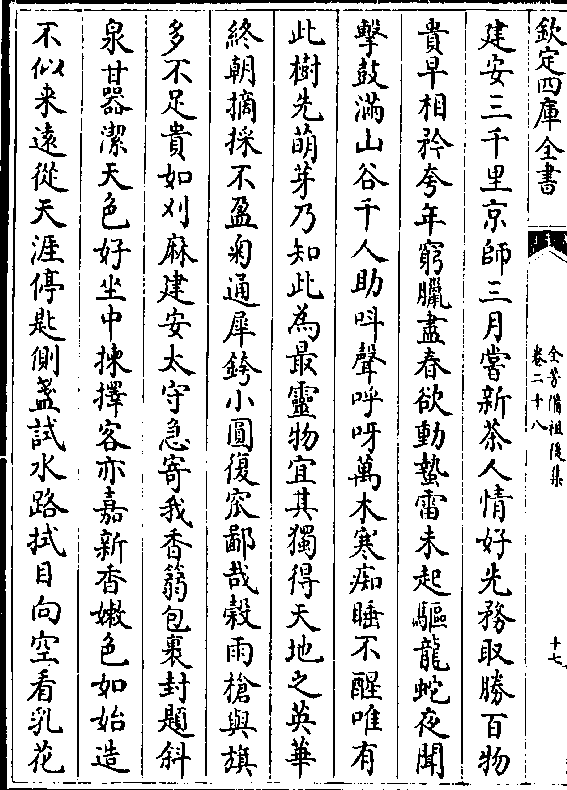 欽定四庫全書
全芳備祖後集
卷二十八
十七
建安三千里京師三月嘗新茶人情好先務取勝百物
貴早相矜夸年窮臘盡春欲動蟄雷未起驅龍蛇夜聞
擊鼓滿山谷千人助呌聲呼呀萬木寒痴睡不醒唯有
此樹先萌芽乃知此為最靈物宜其獨得天地之英華
終朝摘採不盈匊通犀銙小圓復窊鄙哉榖雨槍與旗
多不足貴如刈麻建安太守急寄我香蒻包裹封題斜
泉甘器潔天色好坐中揀擇客亦嘉新香嫩色如始造
不似来遠從天涯停匙側盞試水路拭目向空看乳花